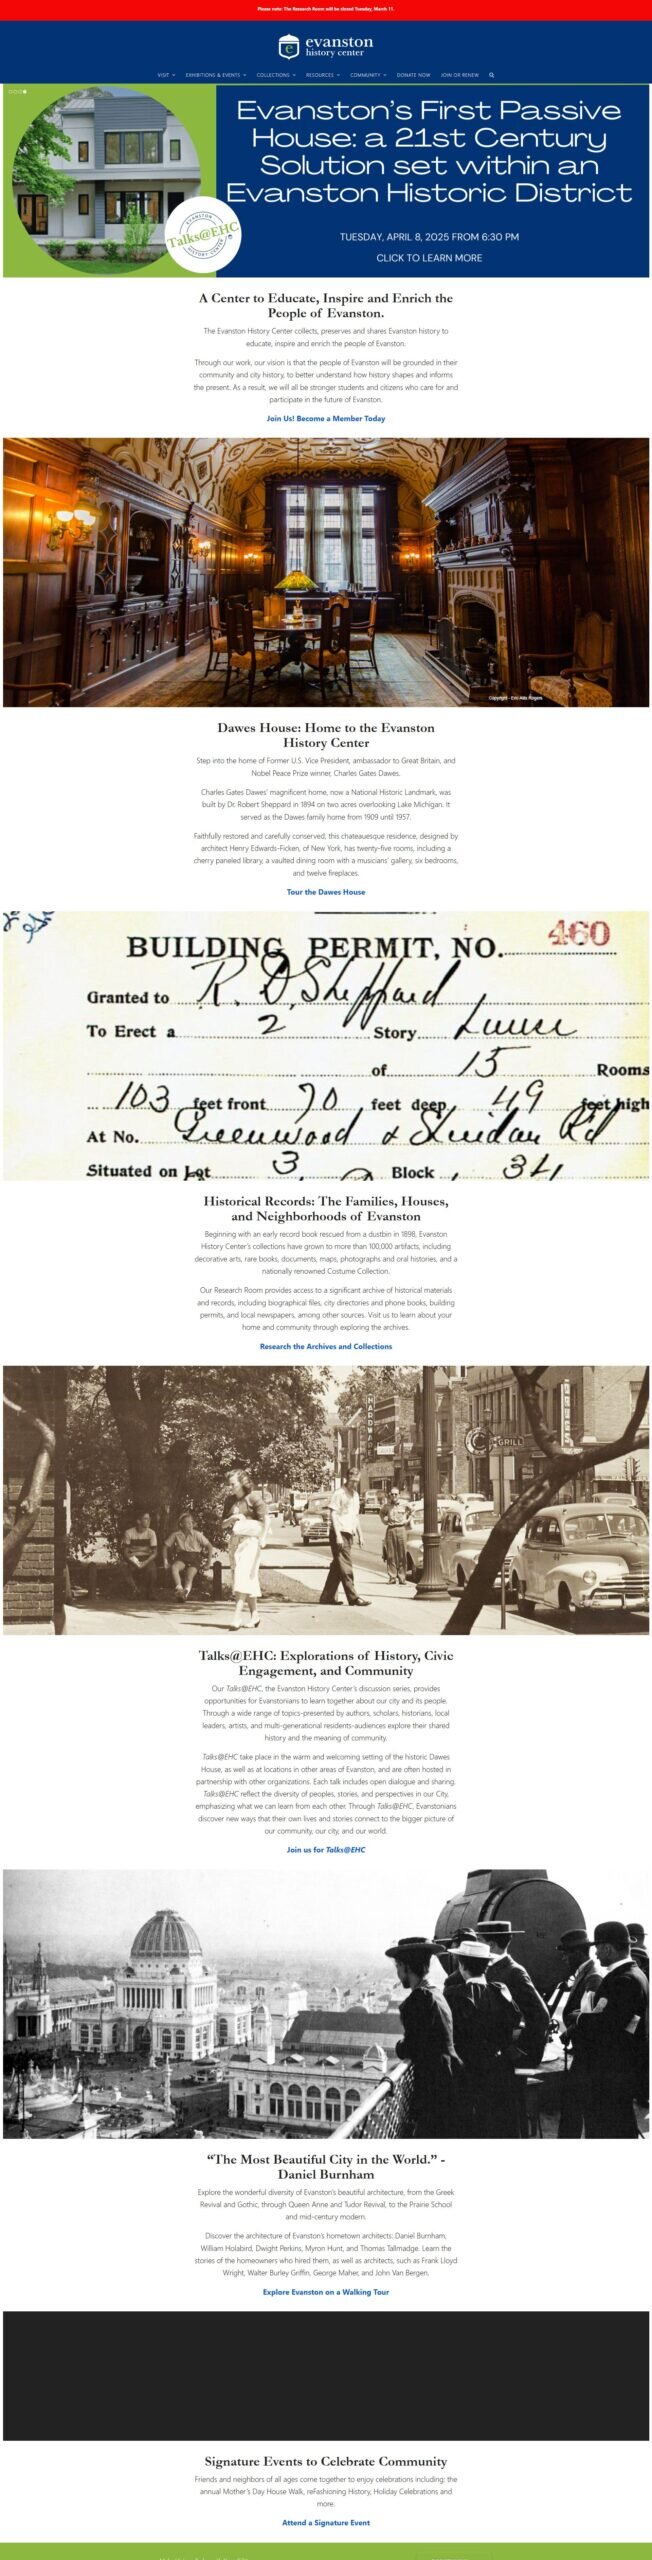 Please note: The Research Room will be closed Tuesday, March 11.
evanston
history center
VISIT EXHIBITIONS & EVENTS COLLECTIONS RESOURCES COMMUNITY DONATE NOW JOIN OR RENEW
Evanston's First Passive
House: a 21st Century
Solution set within an
Evanston Historic District
EVANSTON
Talks@EHC
HISTORY CENTER
TUESDAY, APRIL 8, 2025 FROM 6:30 PM
CLICK TO LEARN MORE
A Center to Educate, Inspire and Enrich the
People of Evanston.
The Evanston History Center collects, preserves and shares Evanston history to
educate, inspire and enrich the people of Evanston.
Through our work, our vision is that the people of Evanston will be grounded in their
community and city history, to better understand how history shapes and informs
the present. As a result, we will all be stronger students and citizens who care for and
participate in the future of Evanston.
Join Us! Become a Member Today
Copyright - Eric Allix Rogers
Dawes House: Home to the Evanston
History Center
Step into the home of Former U.S. Vice President, ambassador to Great Britain, and
Nobel Peace Prize winner, Charles Gates Dawes.
Charles Gates Dawes' magnificent home, now a National Historic Landmark, was
built by Dr. Robert Sheppard in 1894 on two acres overlooking Lake Michigan. It
served as the Dawes family home from 1909 until 1957.
Faithfully restored and carefully conserved, this chateauesque residence, designed by
architect Henry Edwards-Ficken, of New York, has twenty-five rooms, including a
cherry paneled library, a vaulted dining room with a musicians' gallery, six bedrooms,
and twelve fireplaces.
Tour the Dawes House
BUILDING PERMIT, NO. 460
Granted to R. D. Sheppard
To Erect a 2 Story house
of 15 Rooms
103 feet front 70 feet deep 49 feet high
At No. Greenwood & Sheridan Rd
Situated on Lot 3 Block 34
Historical Records: The Families, Houses,
and Neighborhoods of Evanston
Beginning with an early record book rescued from a dustbin in 1898, Evanston
History Center's collections have grown to more than 100,000 artifacts, including
decorative arts, rare books, documents, maps, photographs and oral histories, and a
nationally renowned Costume Collection.
Our Research Room provides access to a significant archive of historical materials
and records, including biographical files, city directories and phone books, building
permits, and local newspapers, among other sources. Visit us to learn about your
home and community through exploring the archives.
Research the Archives and Collections
HARDWARE
GRILL
Talks@EHC: Explorations of History, Civic
Engagement, and Community
Our Talks@EHC, the Evanston History Center's discussion series, provides
opportunities for Evanstonians to learn together about our city and its people.
Through a wide range of topics-presented by authors, scholars, historians, local
leaders, artists, and multi-generational residents-audiences explore their shared
history and the meaning of community.
Talks@EHC take place in the warm and welcoming setting of the historic Dawes
House, as well as at locations in other areas of Evanston, and are often hosted in
partnership with other organizations. Each talk includes open dialogue and sharing.
Talks@EHC reflect the diversity of peoples, stories, and perspectives in our City,
emphasizing what we can learn from each other. Through Talks@EHC, Evanstonians
discover new ways that their own lives and stories connect to the bigger picture of
our community, our city, and our world.
Join us for Talks@EHC
“The Most Beautiful City in the World.” -
Daniel Burnham
Explore the wonderful diversity of Evanston's beautiful architecture, from the Greek
Revival and Gothic, through Queen Anne and Tudor Revival, to the Prairie School
and mid-century modern.
Discover the architecture of Evanston's hometown architects: Daniel Burnham,
William Holabird, Dwight Perkins, Myron Hunt, and Thomas Tallmadge. Learn the
stories of the homeowners who hired them, as well as architects, such as Frank Lloyd
Wright, Walter Burley Griffin, George Maher, and John Van Bergen.
Explore Evanston on a Walking Tour
Signature Events to Celebrate Community
Friends and neighbors of all ages come together to enjoy celebrations including: the
annual Mother's Day House Walk, reFashioning History, Holiday Celebrations and
more.
Attend a Signature Event